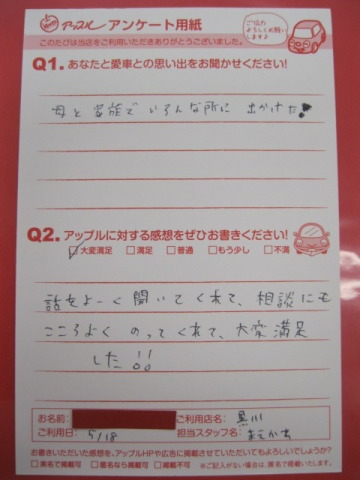 アップル アンケート用紙
ご協力
よろしくお願い
します♪
このたびは当店をご利用いただきありがとうございました。
Q1. あなたと愛車との思い出をお聞かせください!
母と家族でいろんな所に出かけた!
Q2. アップルに対する感想をぜひお書きください!
☑大変満足 □満足 □普通 □もう少し □不満
話をよーく聞いてくれて、相談にも
こころよくのってくれて、大変満足
した!!
お名前: ご利用店名: 黒川
ご利用日: 5/18 担当スタッフ名:
お書きいただいた感想を、アップルHPや広告に掲載させていただいてもよろしいでしょうか?
□実名で掲載可 □匿名なら掲載可 □掲載不可 ※ご記入がない場合は、匿名で掲載いたします。